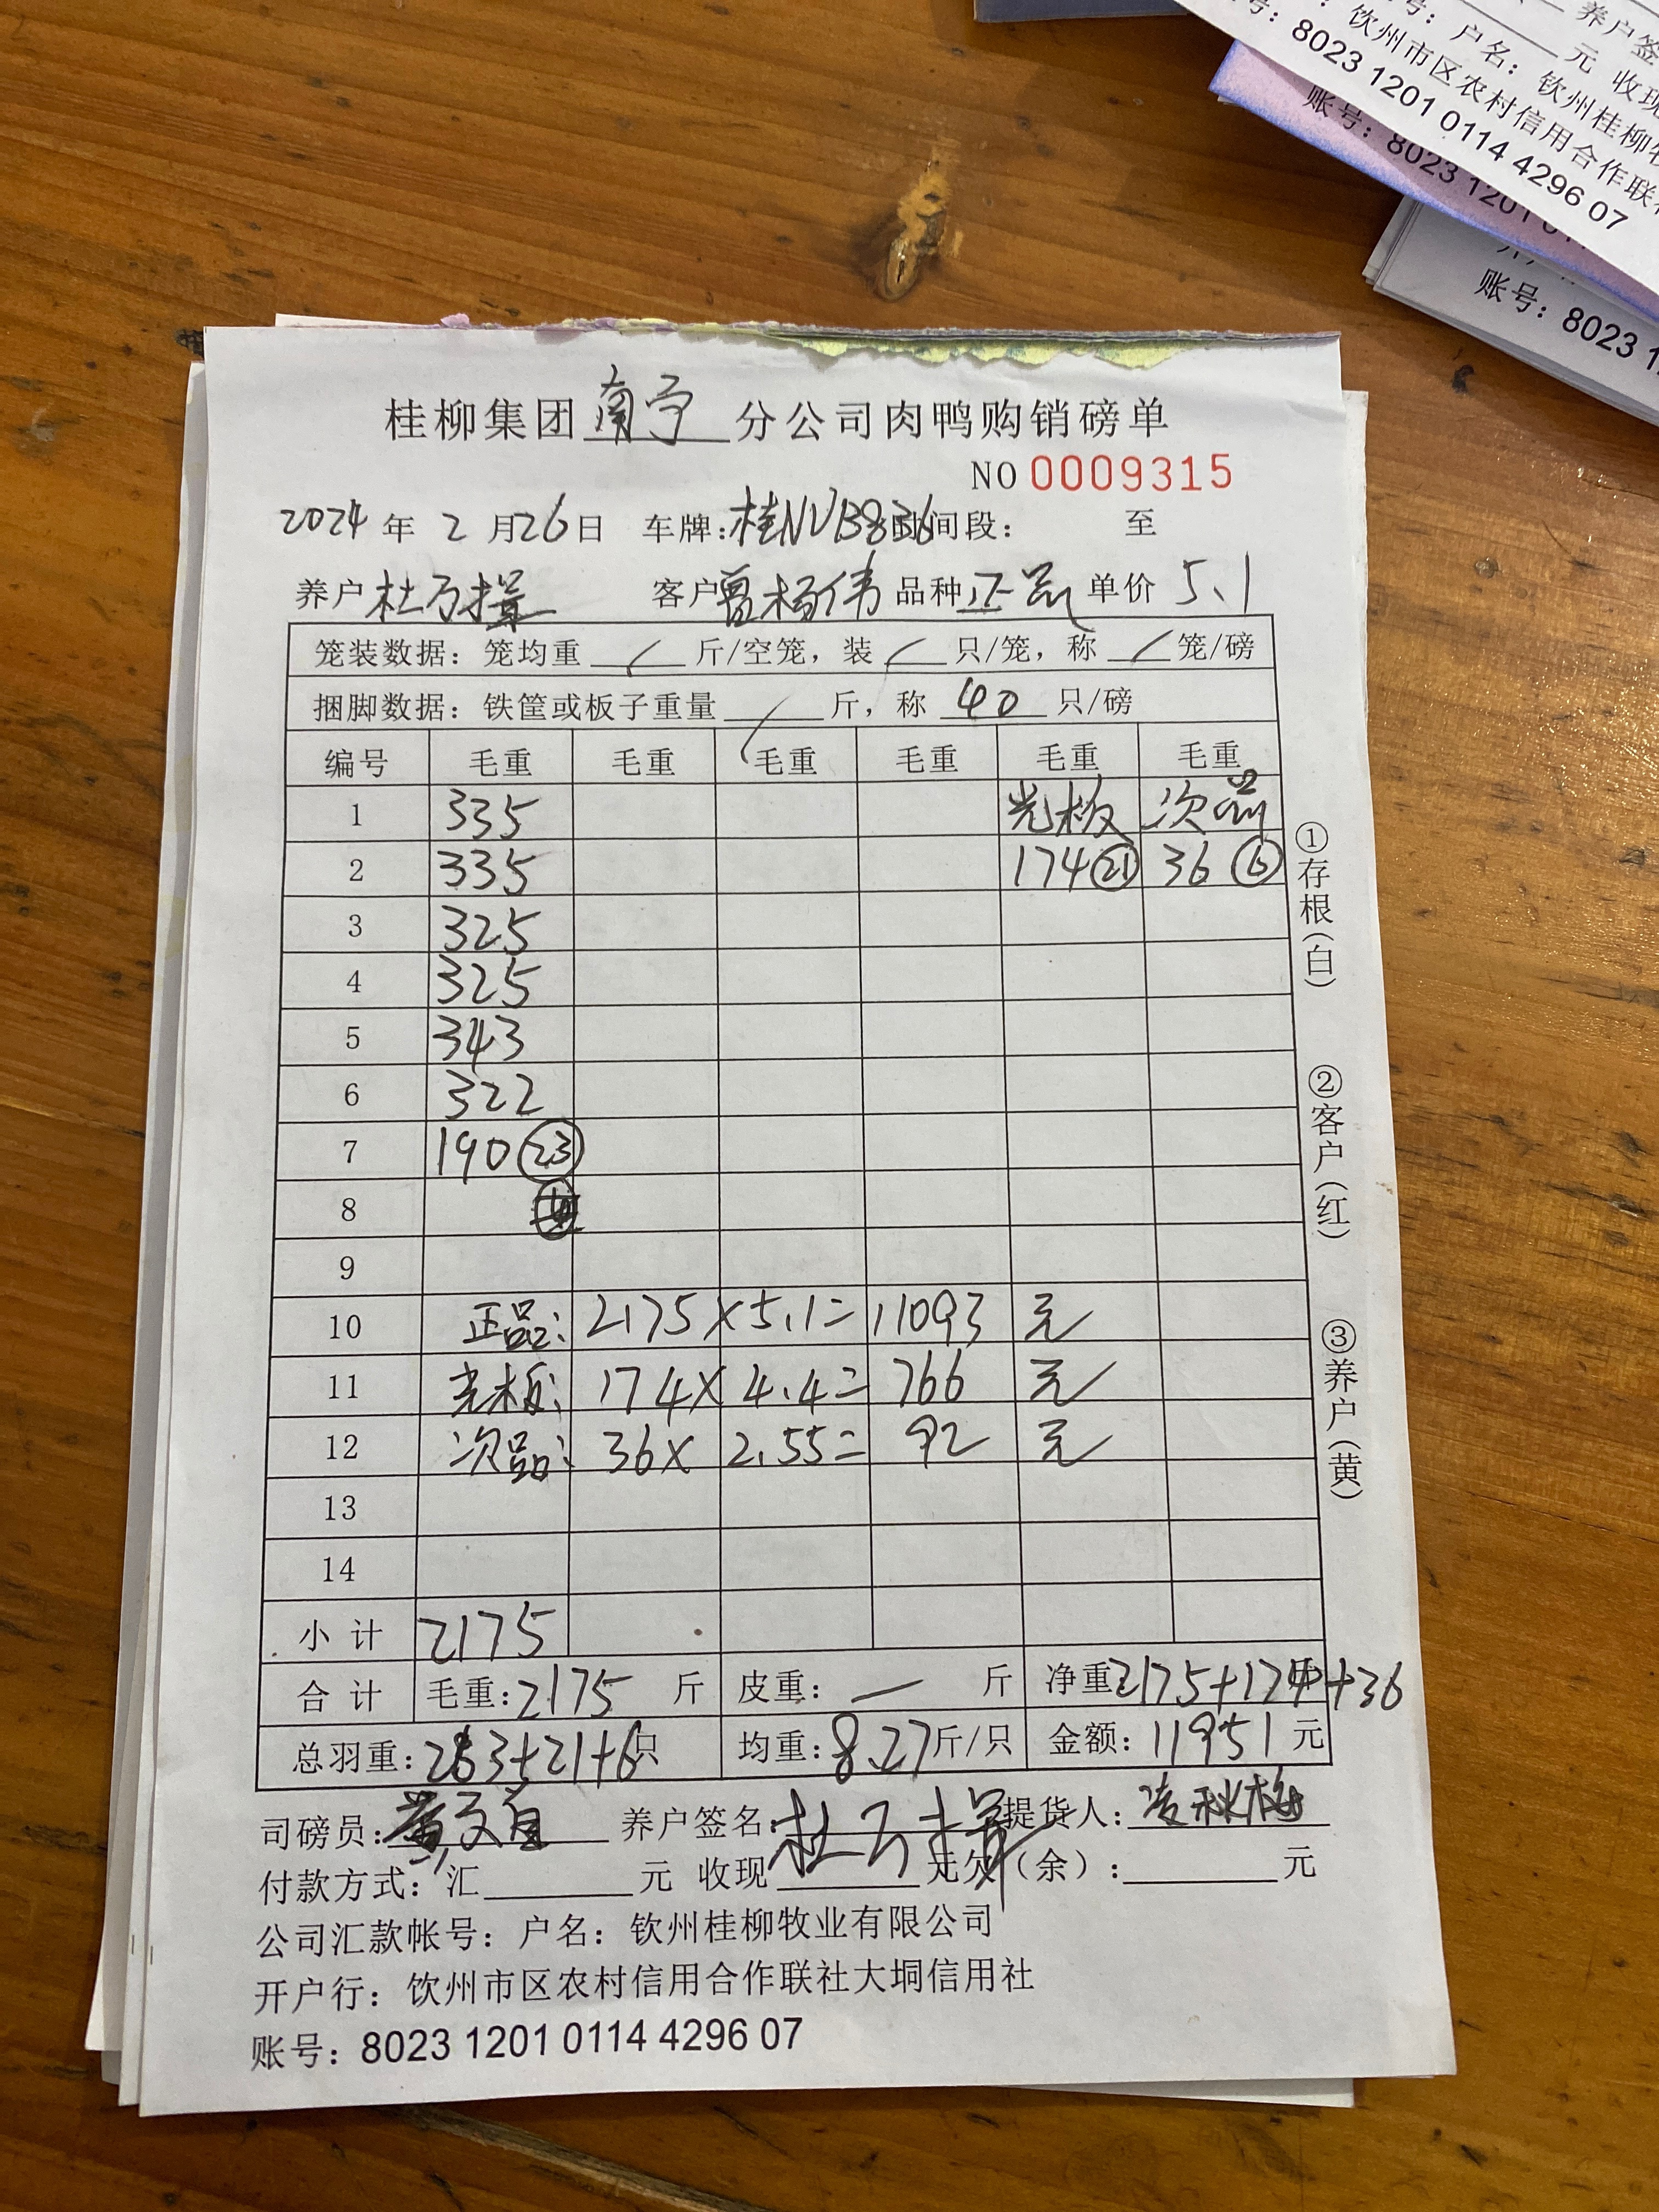 号：户名：钦州桂柳牧
元 收现
养户签
：钦州市区农村信用合作联
号：8023 1201 0114 4296 07
账号：8023 1201 01
账号：8023 1
桂柳集团 南宁 分公司肉鸭购销磅单
NO 0009315
2024 年 2 月 26 日 车牌：桂NVB836 时间段： 至
养户 杜万 客户 曾杨伟 品种 正品 单价 5.1
笼装数据：笼均重 / 斤/空笼，装 / 只/笼，称 / 笼/磅
捆脚数据：铁筐或板子重量 / 斤，称 40 只/磅
编号 毛重 毛重 毛重 毛重 毛重 毛重
1 335 光板 次品
2 335 174 21 36 6
3 325
4 325
5 343
6 322
7 190 23
8
9
10 正品： 2175×5.1= 11093 元
11 光板： 174×4.4= 766 元
12 次品： 36×2.55= 92 元
13
14
小计 2175
合计 毛重：2175 斤 皮重：— 斤 净重：2175+174+36
总羽重：263+21+6只 均重：8.27斤/只 金额：11951 元
司磅员：黄 养户签名：杜万 提货人：凌秋梅
付款方式：汇 元 收现 元欠（余）： 元
公司汇款帐号：户名：钦州桂柳牧业有限公司
开户行：钦州市区农村信用合作联社大垌信用社
账号：8023 1201 0114 4296 07
①存根（白）
②客户（红）
③养户（黄）